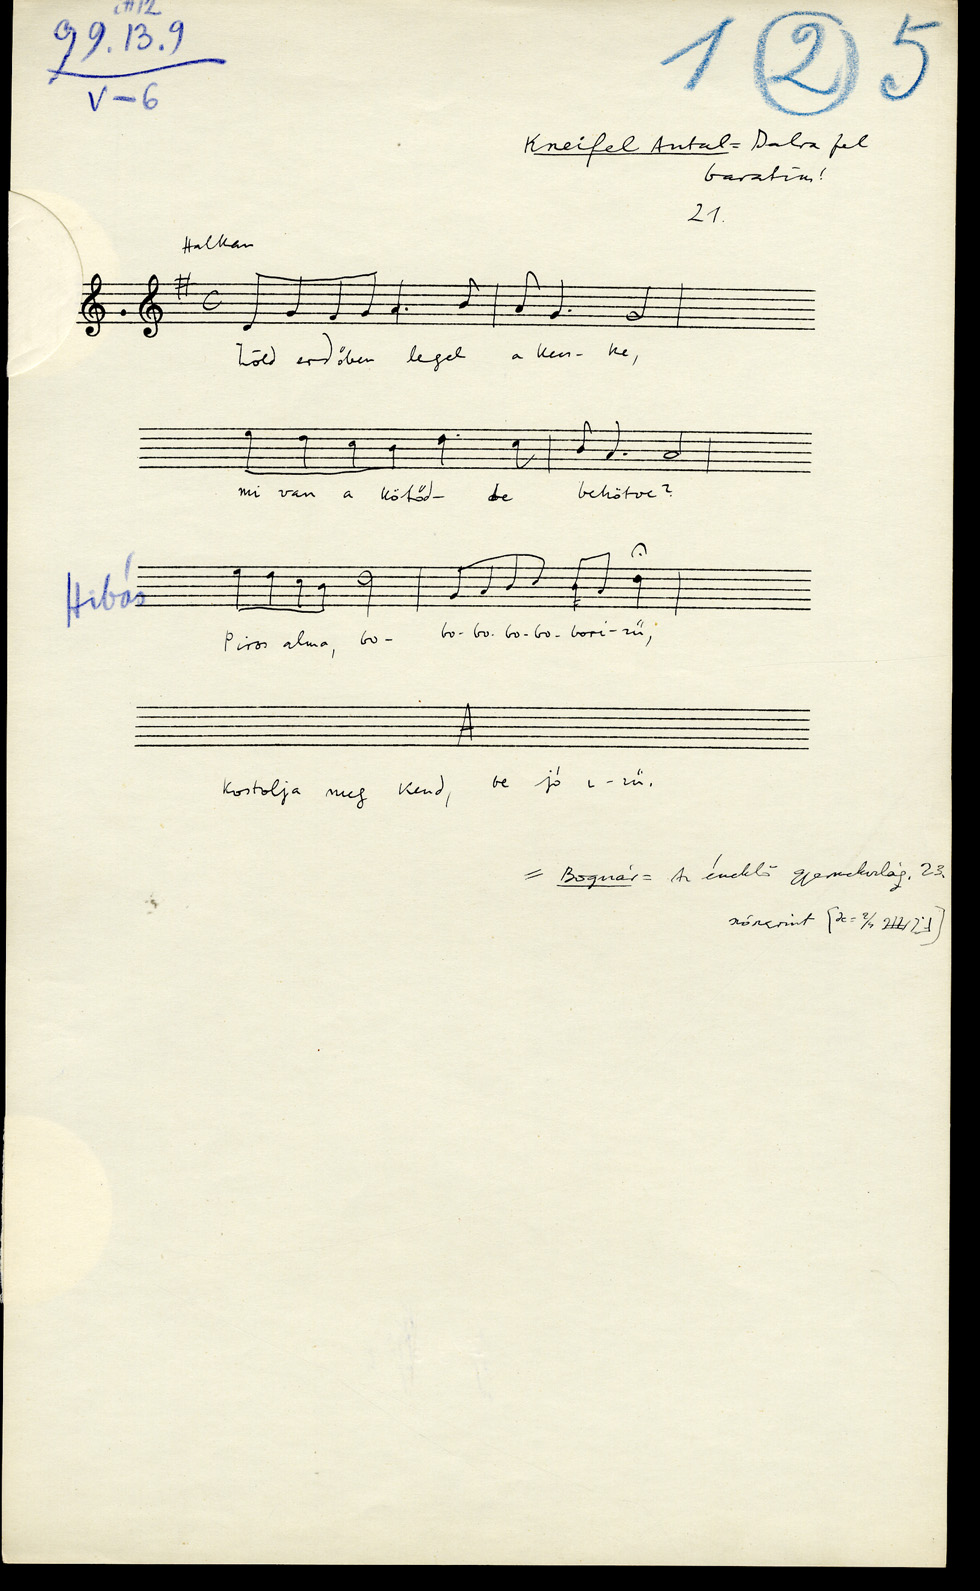 99.13.9
V-6
1 2 5
Kneifel Antal = Dalra fel
barátim!
21.
Halkan
C
Zöld erdőben legel a kecs-ke,
mi van a kötőd- be bekötve?
Hibás
Piros alma, bo- bo-bo-bo-bo-bori-zű,
A
Kostolja meg Kend, be jó i-zű.
= Bognár = Az éneklő gyermekvilág. 23.